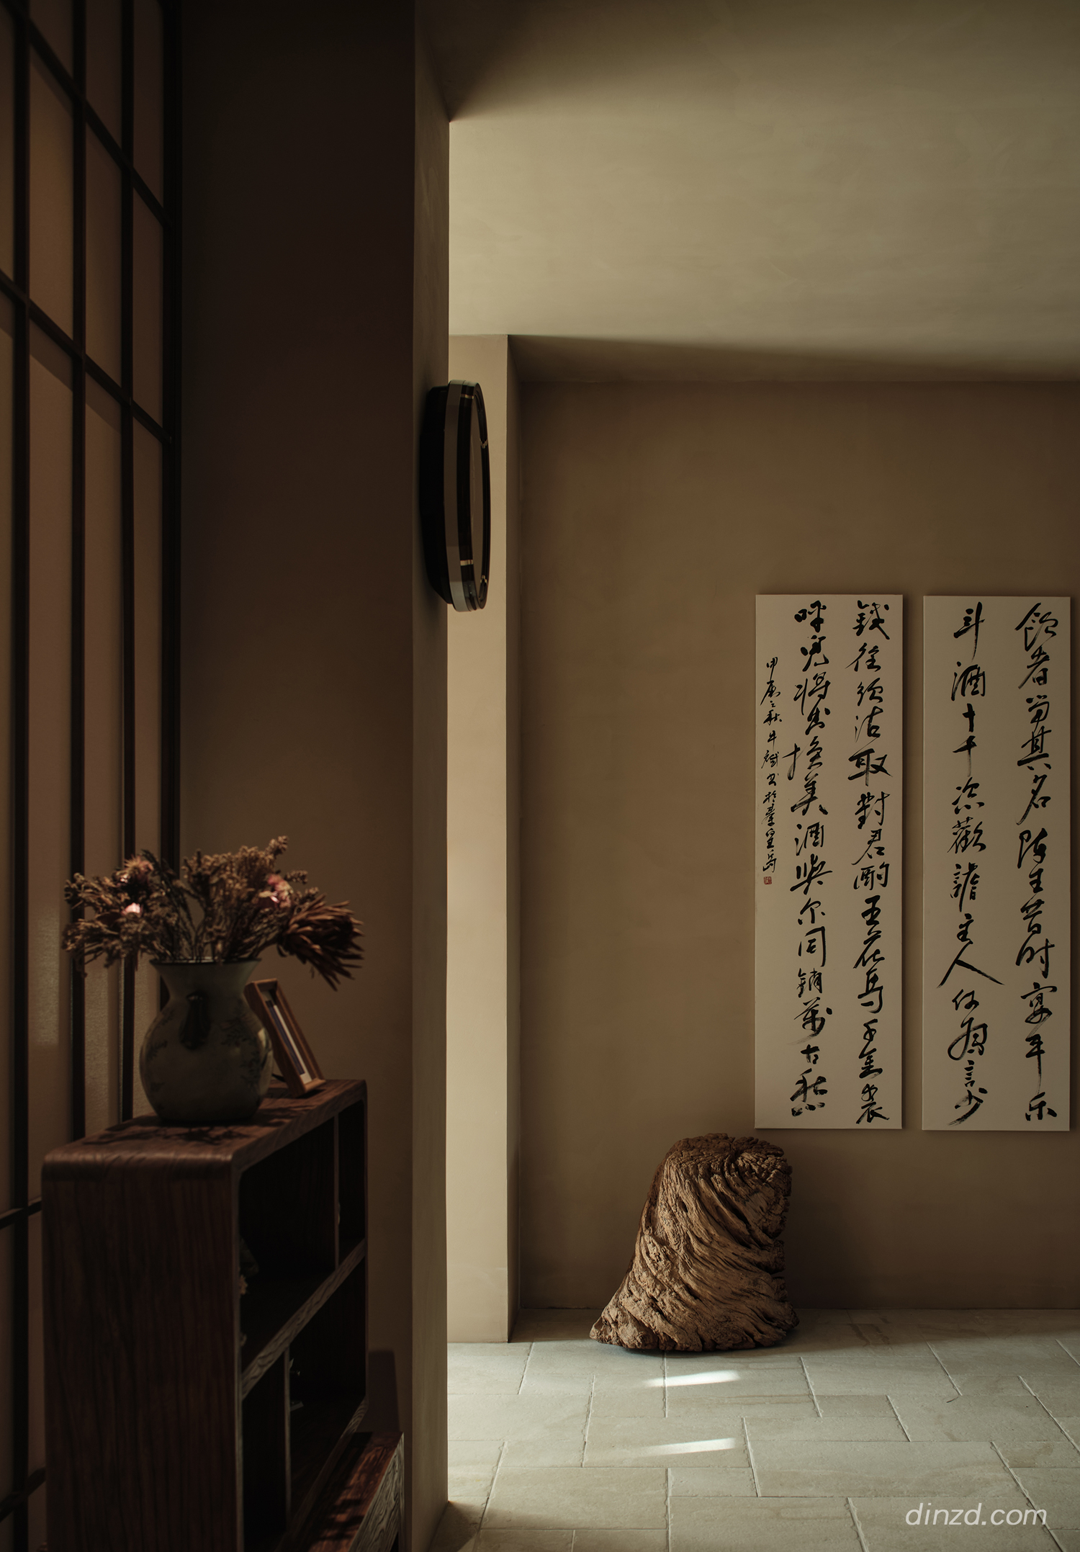 飲者留其名陈王昔时宴平乐
斗酒十千恣歡謔主人何為言少
錢徑須沽取對君酌五花馬千金裘
呼兒將出換美酒與尔同銷萬古愁
甲辰之秋牛斌书於秦皇岛
dinzd.com